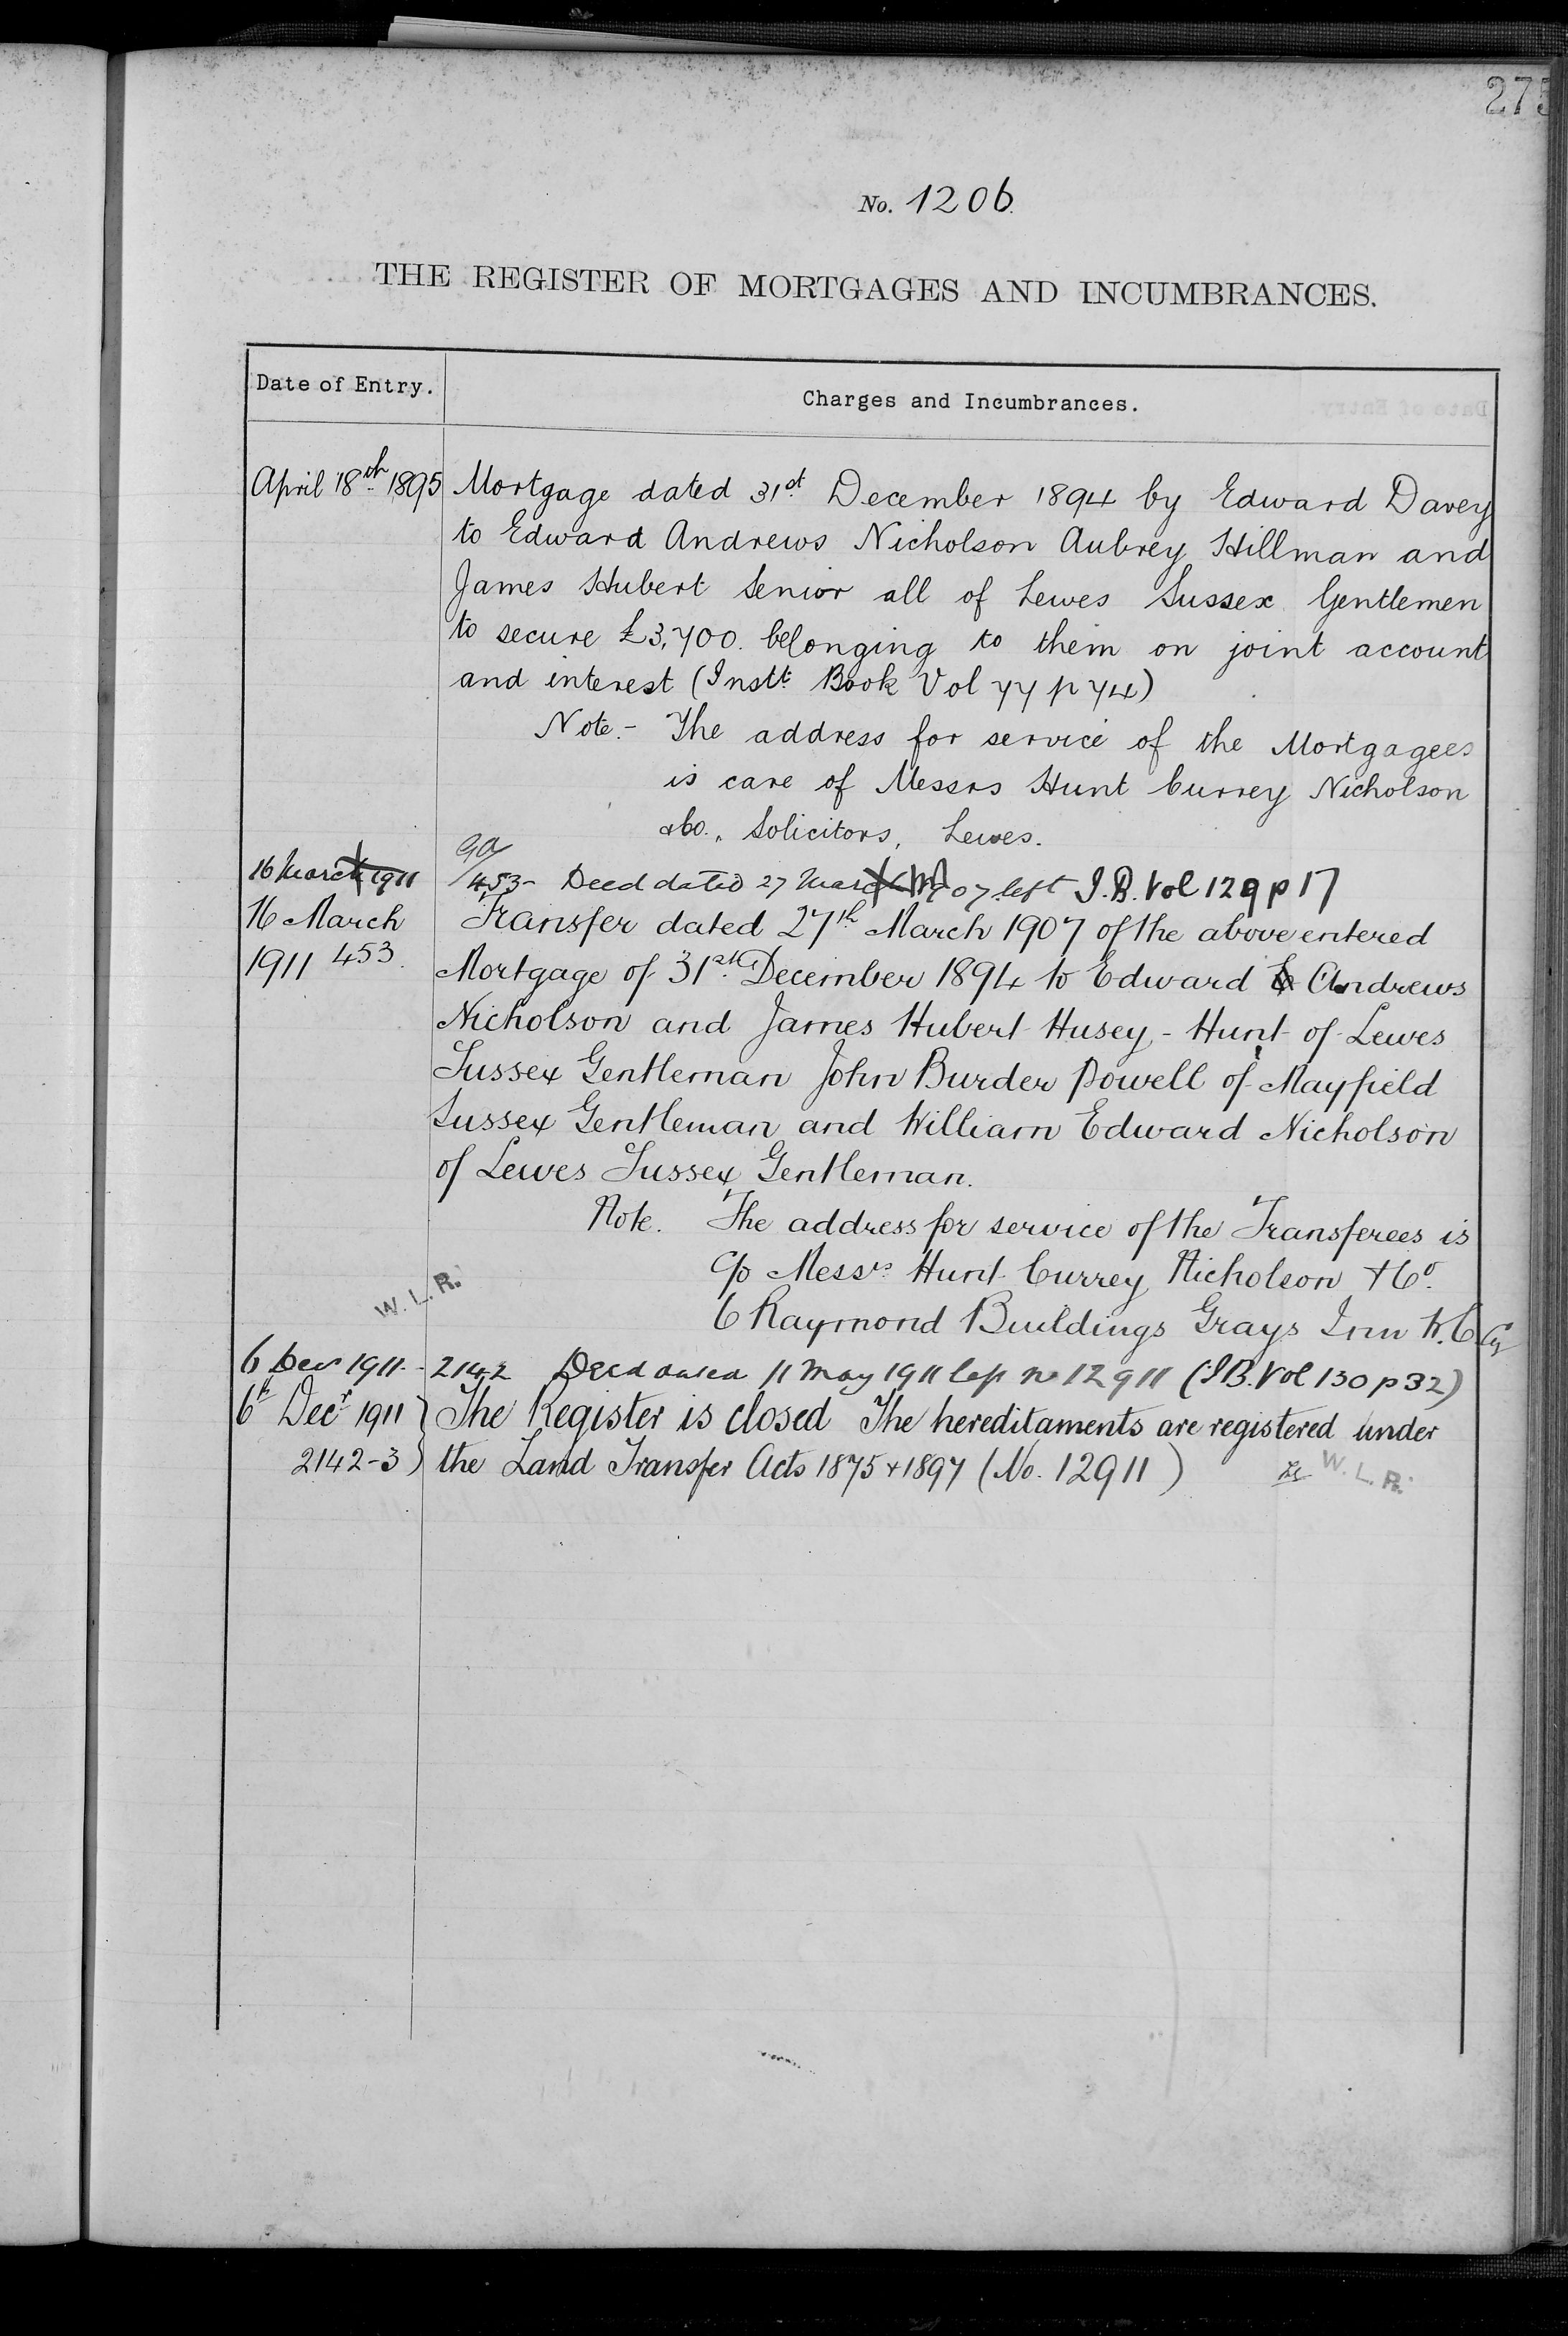 275
No. 1206.
THE REGISTER OF MORTGAGES AND INCUMBRANCES.
Date of Entry.
Charges and Incumbrances.
April 18th 1895 Mortgage dated 31st December 1894 by Edward Davey
to Edward Andrews Nicholson Aubrey Hillman and
James Hubert Senior all of Lewes Sussex Gentlemen
to secure £3,700. belonging to them on joint account
and interest (Instt. Book Vol 77 p 74)
Note.- The address for service of the Mortgagees
is care of Messrs Hunt Currey Nicholson
&Co., Solicitors, Lewes.
16 March 1911 453- Deed dated 27 March 1907 left I.B. Vol 129 p 17
16 March Transfer dated 27th March 1907 of the above entered
1911 453. Mortgage of 31st December 1894 to Edward Andrews
Nicholson and James Hubert Husey-Hunt of Lewes
Sussex Gentleman John Burder Powell of Mayfield
Sussex Gentleman and William Edward Nicholson
of Lewes Sussex Gentleman.
Note. The address for service of the Transferees is
c/o Messrs. Hunt Currey Nicholson & Co.
6 Raymond Buildings Grays Inn W.C
W. L. R.
6 Dec 1911. 2142 Deed dated 11 May 1911 left no 12911 (I.B. Vol 130 p 32)
6th Decr 1911 The Register is closed The hereditaments are registered under
2142-3 the Land Transfer Acts 1875 & 1897 (No. 12911)
W. L. R.